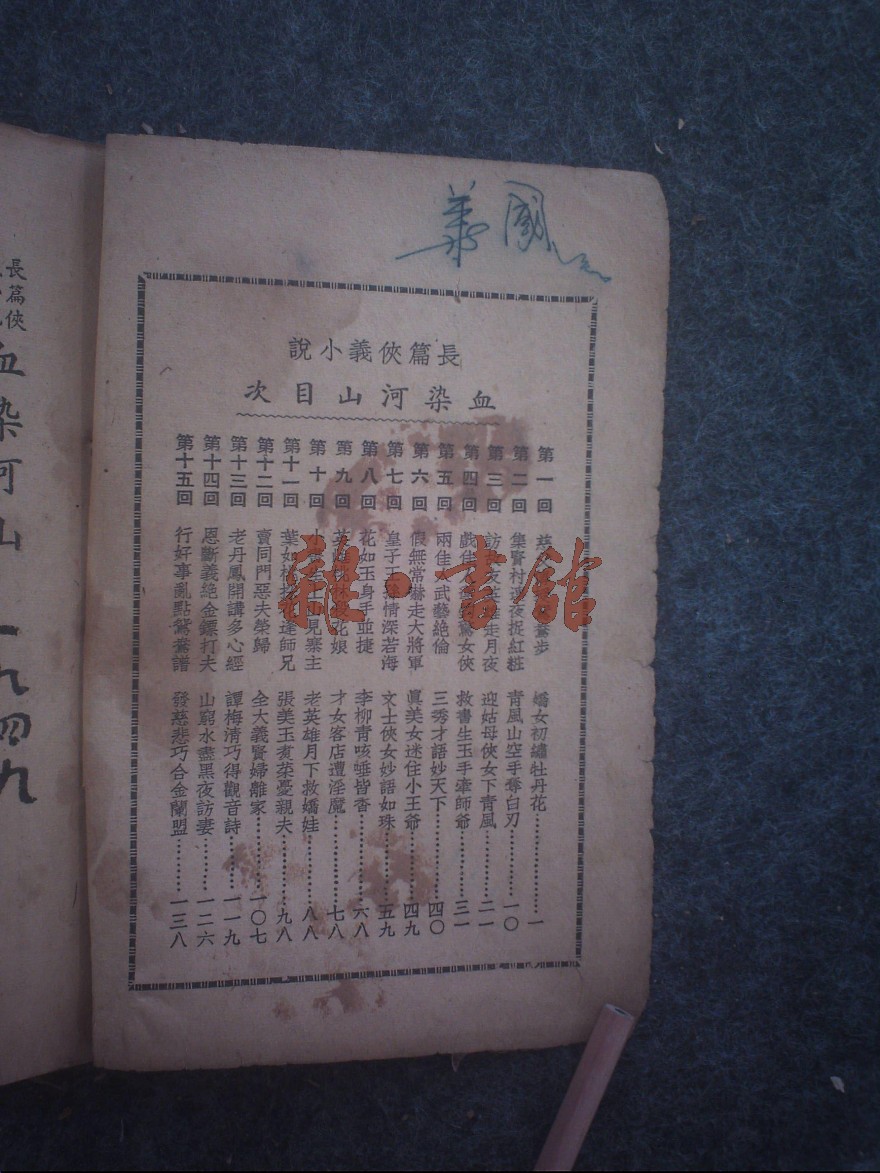 國華
長篇俠義小說
血染河山目次
第一回 慈 鴛鴦步 嬌女初繡牡丹花 一
第二回 集賢村 夜捉紅粧 青風山空手奪白刃 一〇
第三回 訪 夜 走月夜 迎姑母俠女下青風 二一
第四回 戲佳 驚女俠 救書生玉手牽師爺 三一
第五回 兩佳 武藝絕倫 三秀才語妙天下 四〇
第六回 假無常嚇走大將軍 眞美女迷住小王爺 四九
第七回 皇子王孫情深若海 文士俠女妙語如珠 五九
第八回 花如玉身手並捷 李柳青咳唾皆香 六八
第九回 英 林 花娘 才女客店遭淫魔 七八
第十回 山見寨主 老英雄月下救嬌娃 八八
第十一回 葉如 逢師兄 張美玉煑茶憂親夫 九八
第十二回 賣同門惡夫榮歸 全大義賢婦離家 一〇七
第十三回 老丹鳳開講多心經 譚梅淸巧得觀音詩 一一九
第十四回 恩斷義絕金鏢打夫 山窮水盡黑夜訪妻 一二六
第十五回 行好事亂點鴛鴦譜 發慈悲巧合金蘭盟 一三八
長篇俠
血染河山 一九四九
雜·書館